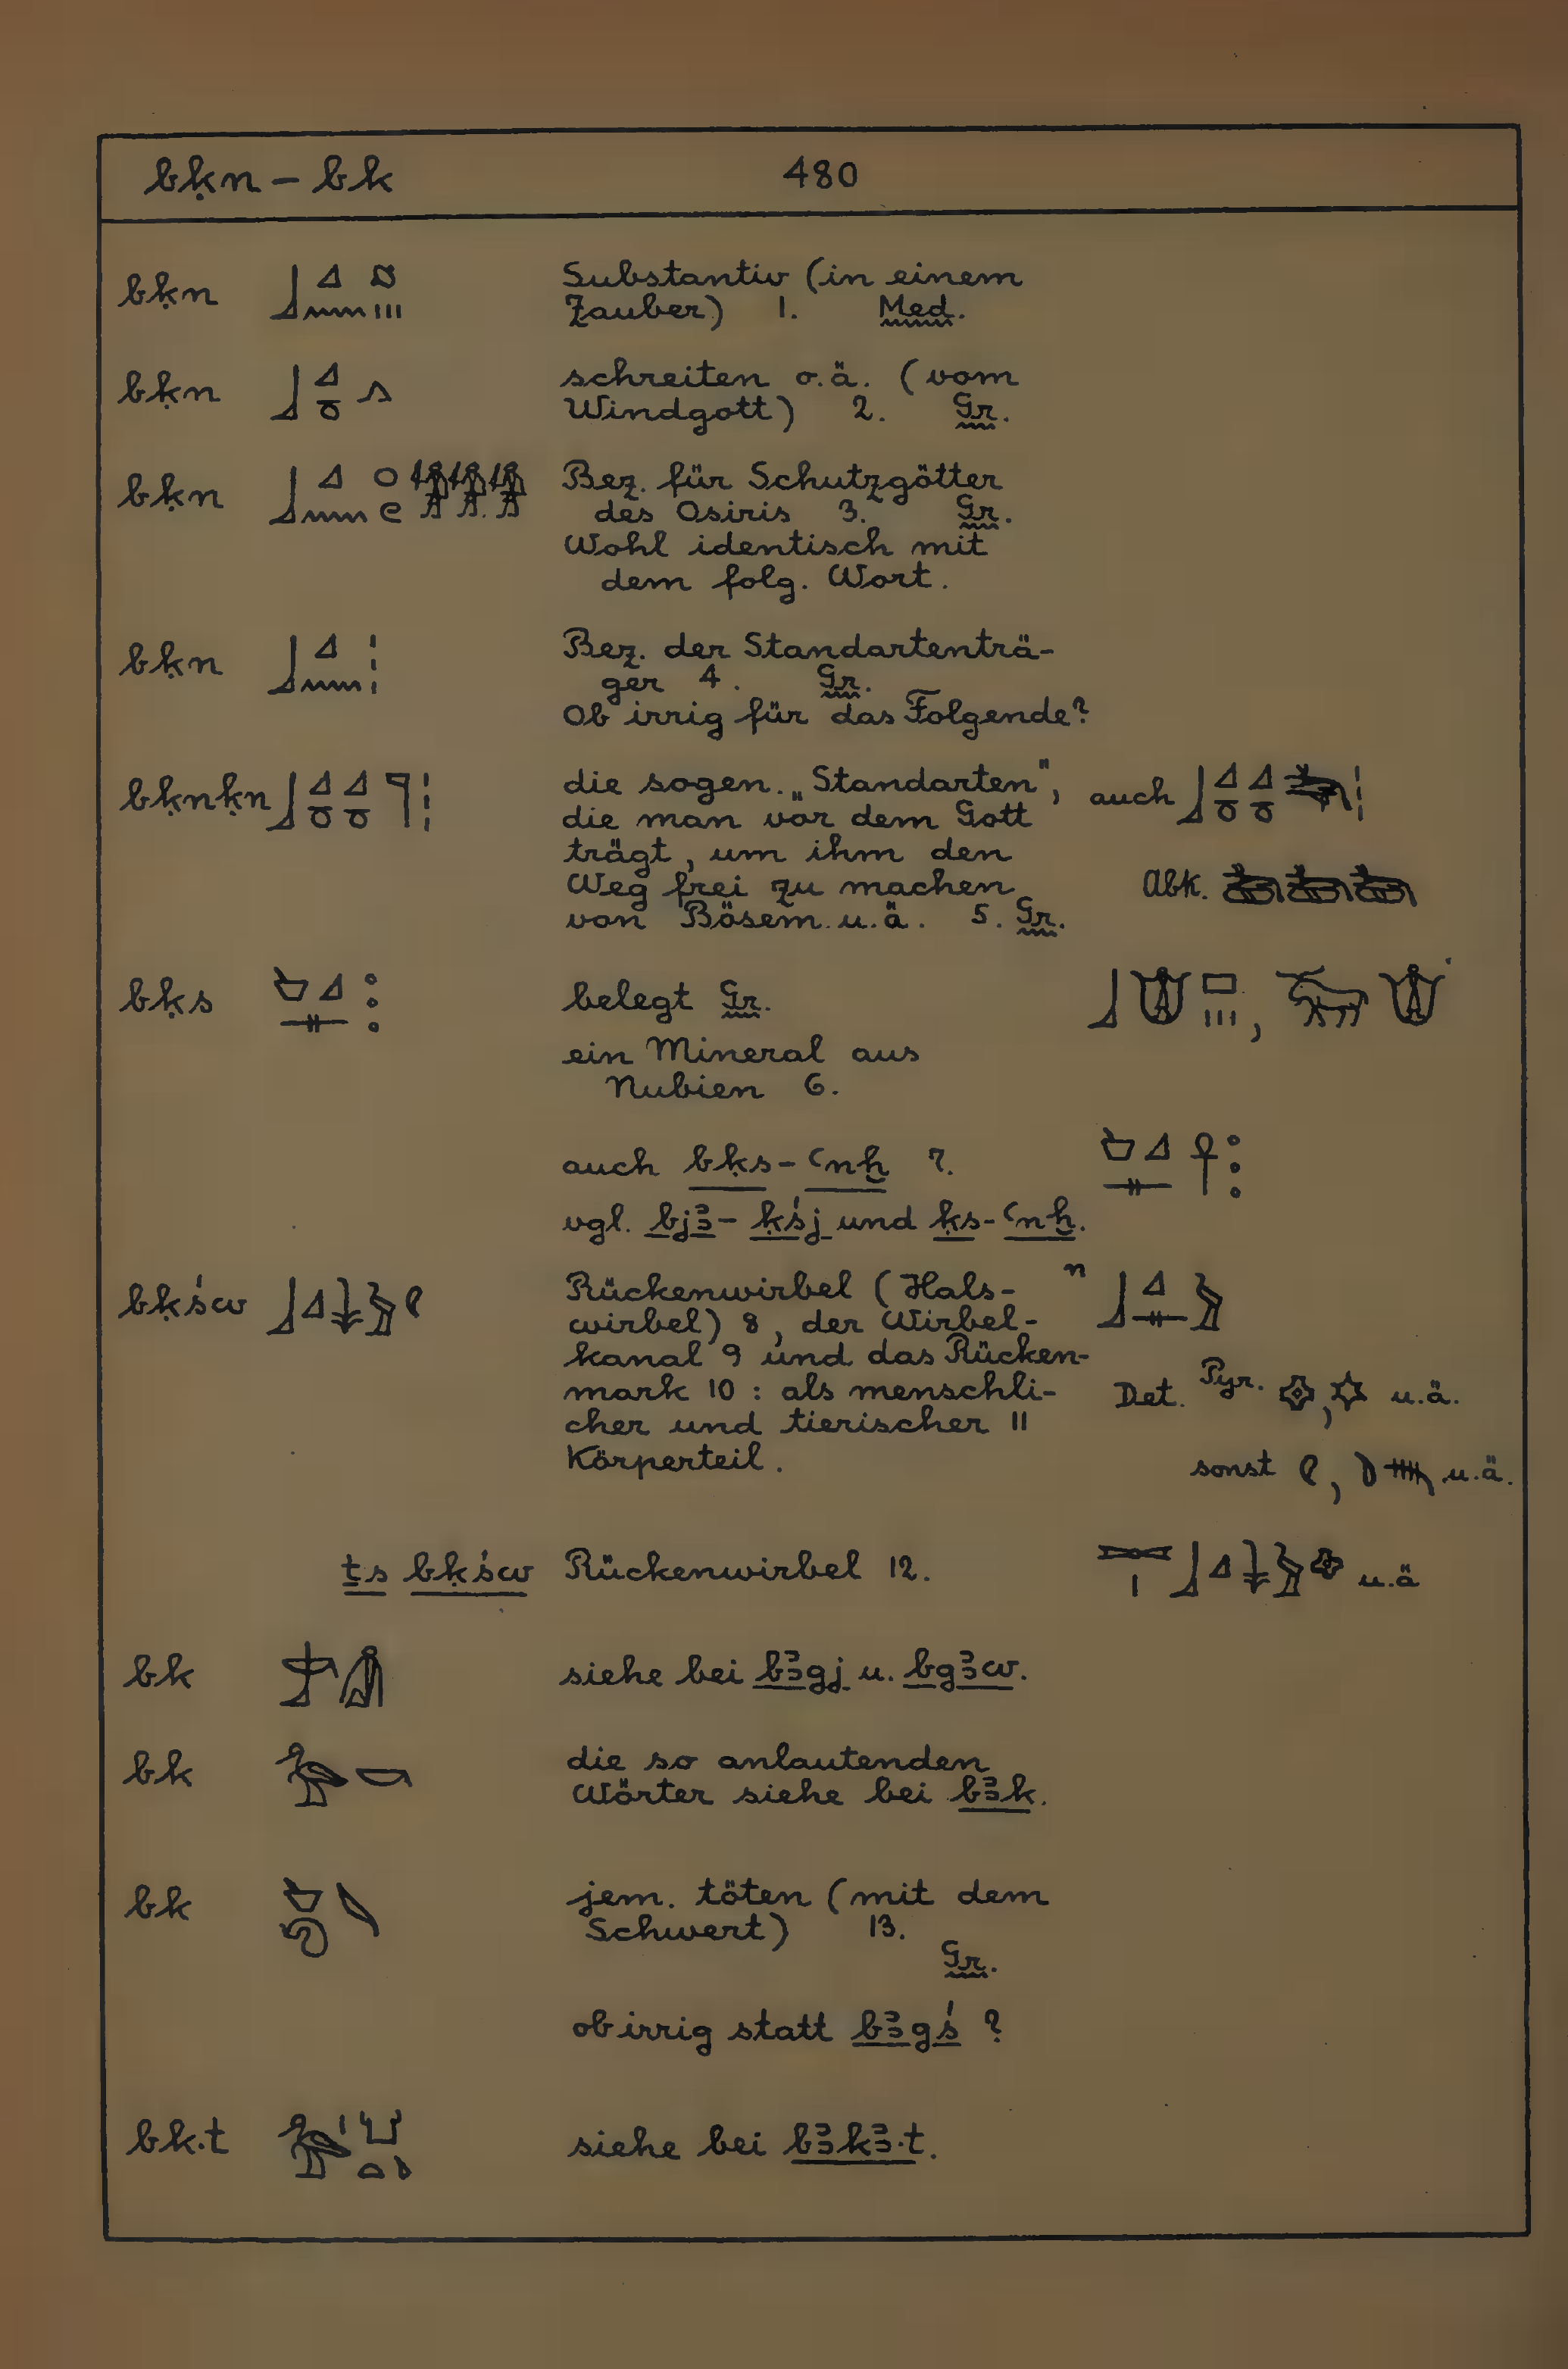 bḳn – bk 480
bḳn Substantiv (in einem
Zauber) 1. Med.
bḳn schreiten o.ä. (vom
Windgott) 2. Gr.
bḳn Bez. für Schutzgötter
des Osiris 3. Gr.
Wohl identisch mit
dem folg. Wort.
bḳn Bez. der Standartenträ-
ger 4. Gr.
Ob irrig für das Folgende?
bḳnḳn die sogen. „Standarten", auch
die man vor dem Gott
trägt, um ihm den
Weg frei zu machen Abk.
von Bösem u.ä. 5. Gr.
bḳs belegt Gr.
ein Mineral aus
Nubien 6.
auch bḳs-ꜥnḫ 7.
vgl. bjꜣ-ḳśj und ḳs-ꜥnḫ.
bḳśw Rückenwirbel (Hals- n
wirbel) 8, der Wirbel-
kanal 9 und das Rücken-
mark 10 : als menschli- Det. Pyr. , u.ä.
cher und tierischer 11
Körperteil. sonst , u.ä.
ṯs bḳśw Rückenwirbel 12. u.ä
bk siehe bei bꜣgj u. bgꜣw.
bk die so anlautenden
Wörter siehe bei bꜣk.
bk jem. töten (mit dem
Schwert) 13.
Gr.
ob irrig statt bꜣgś ?
bk.t siehe bei bꜣkꜣ.t.